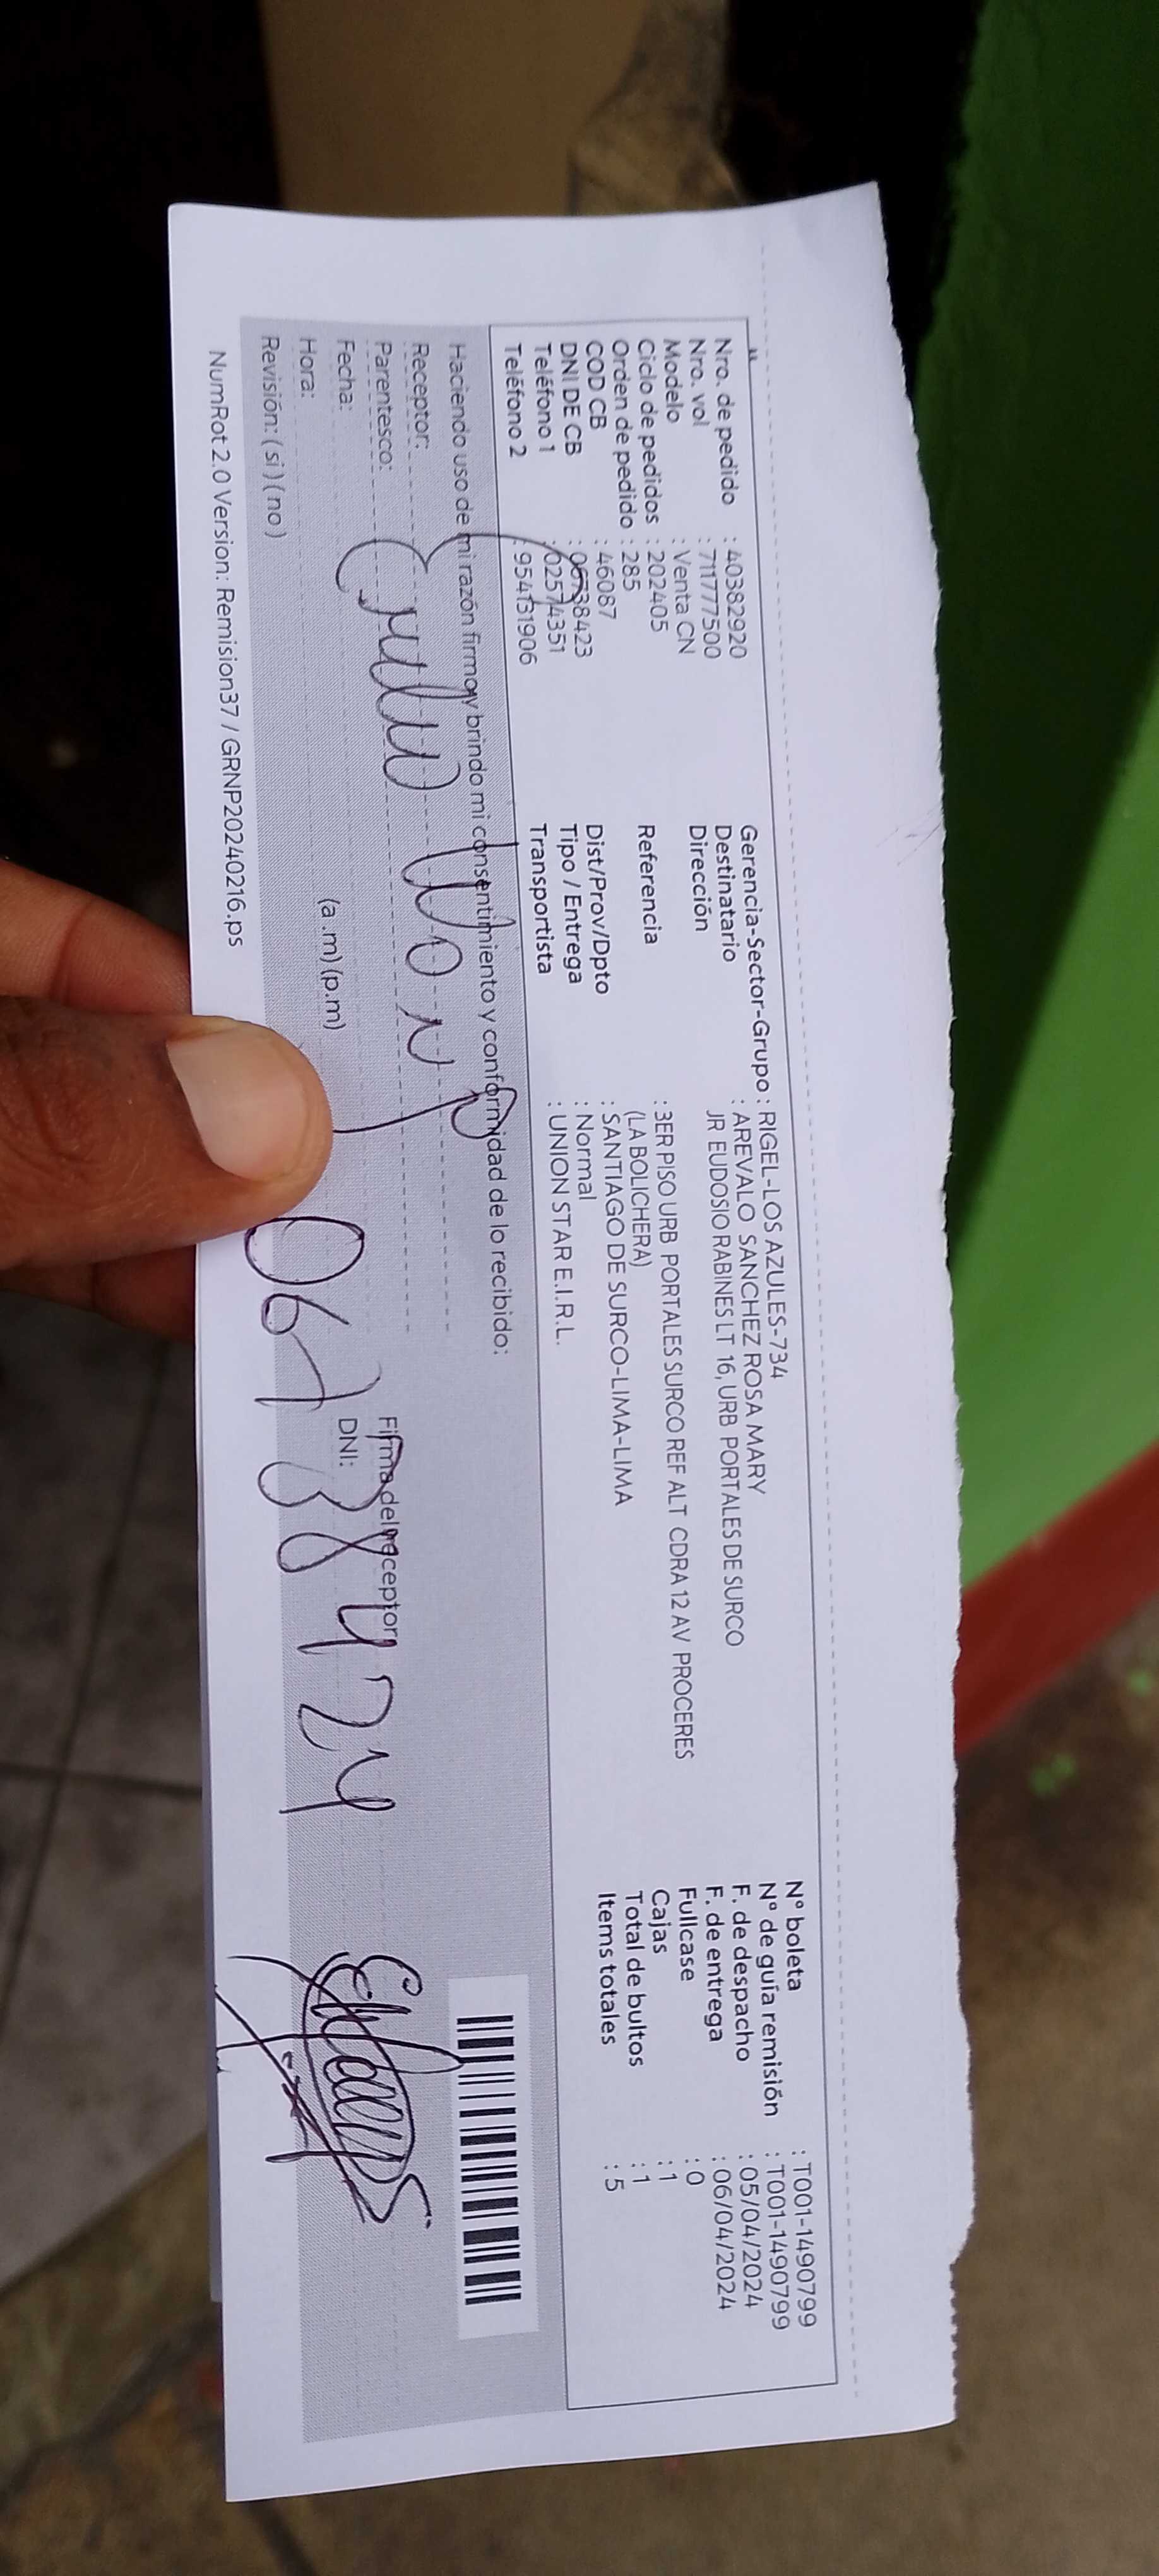 Nro. de pedido : 40382920
Nro. vol : 711777500
Modelo : Venta CN
Ciclo de pedidos : 202405
Orden de pedido : 285
COD CB : 46087
DNI DE CB : 06738423
Teléfono 1 : 02574351
Teléfono 2 : 954131906
Gerencia-Sector-Grupo : RIGEL-LOS AZULES-734
Destinatario : AREVALO SANCHEZ ROSA MARY
Dirección JR EUDOSIO RABINES LT 16, URB PORTALES DE SURCO
Referencia : 3ER PISO URB PORTALES SURCO REF ALT CDRA 12 AV PROCERES
(LA BOLICHERA)
Dist/Prov/Dpto : SANTIAGO DE SURCO-LIMA-LIMA
Tipo / Entrega : Normal
Transportista : UNION STAR E.I.R.L.
N° boleta : T001-1490799
N° de guía remisión : T001-1490799
F. de despacho : 05/04/2024
F. de entrega : 06/04/2024
Fullcase : 0
Cajas : 1
Total de bultos : 1
Items totales : 5
Haciendo uso de mi razón firmo y brindo mi consentimiento y conformidad de lo recibido:
Receptor:
Parentesco:
Fecha:
Hora: (a.m) (p.m)
Revisión: ( si ) ( no )
Firma del receptor
DNI:
06738424
NumRot 2.0 Version: Remision37 / GRNP20240216.ps